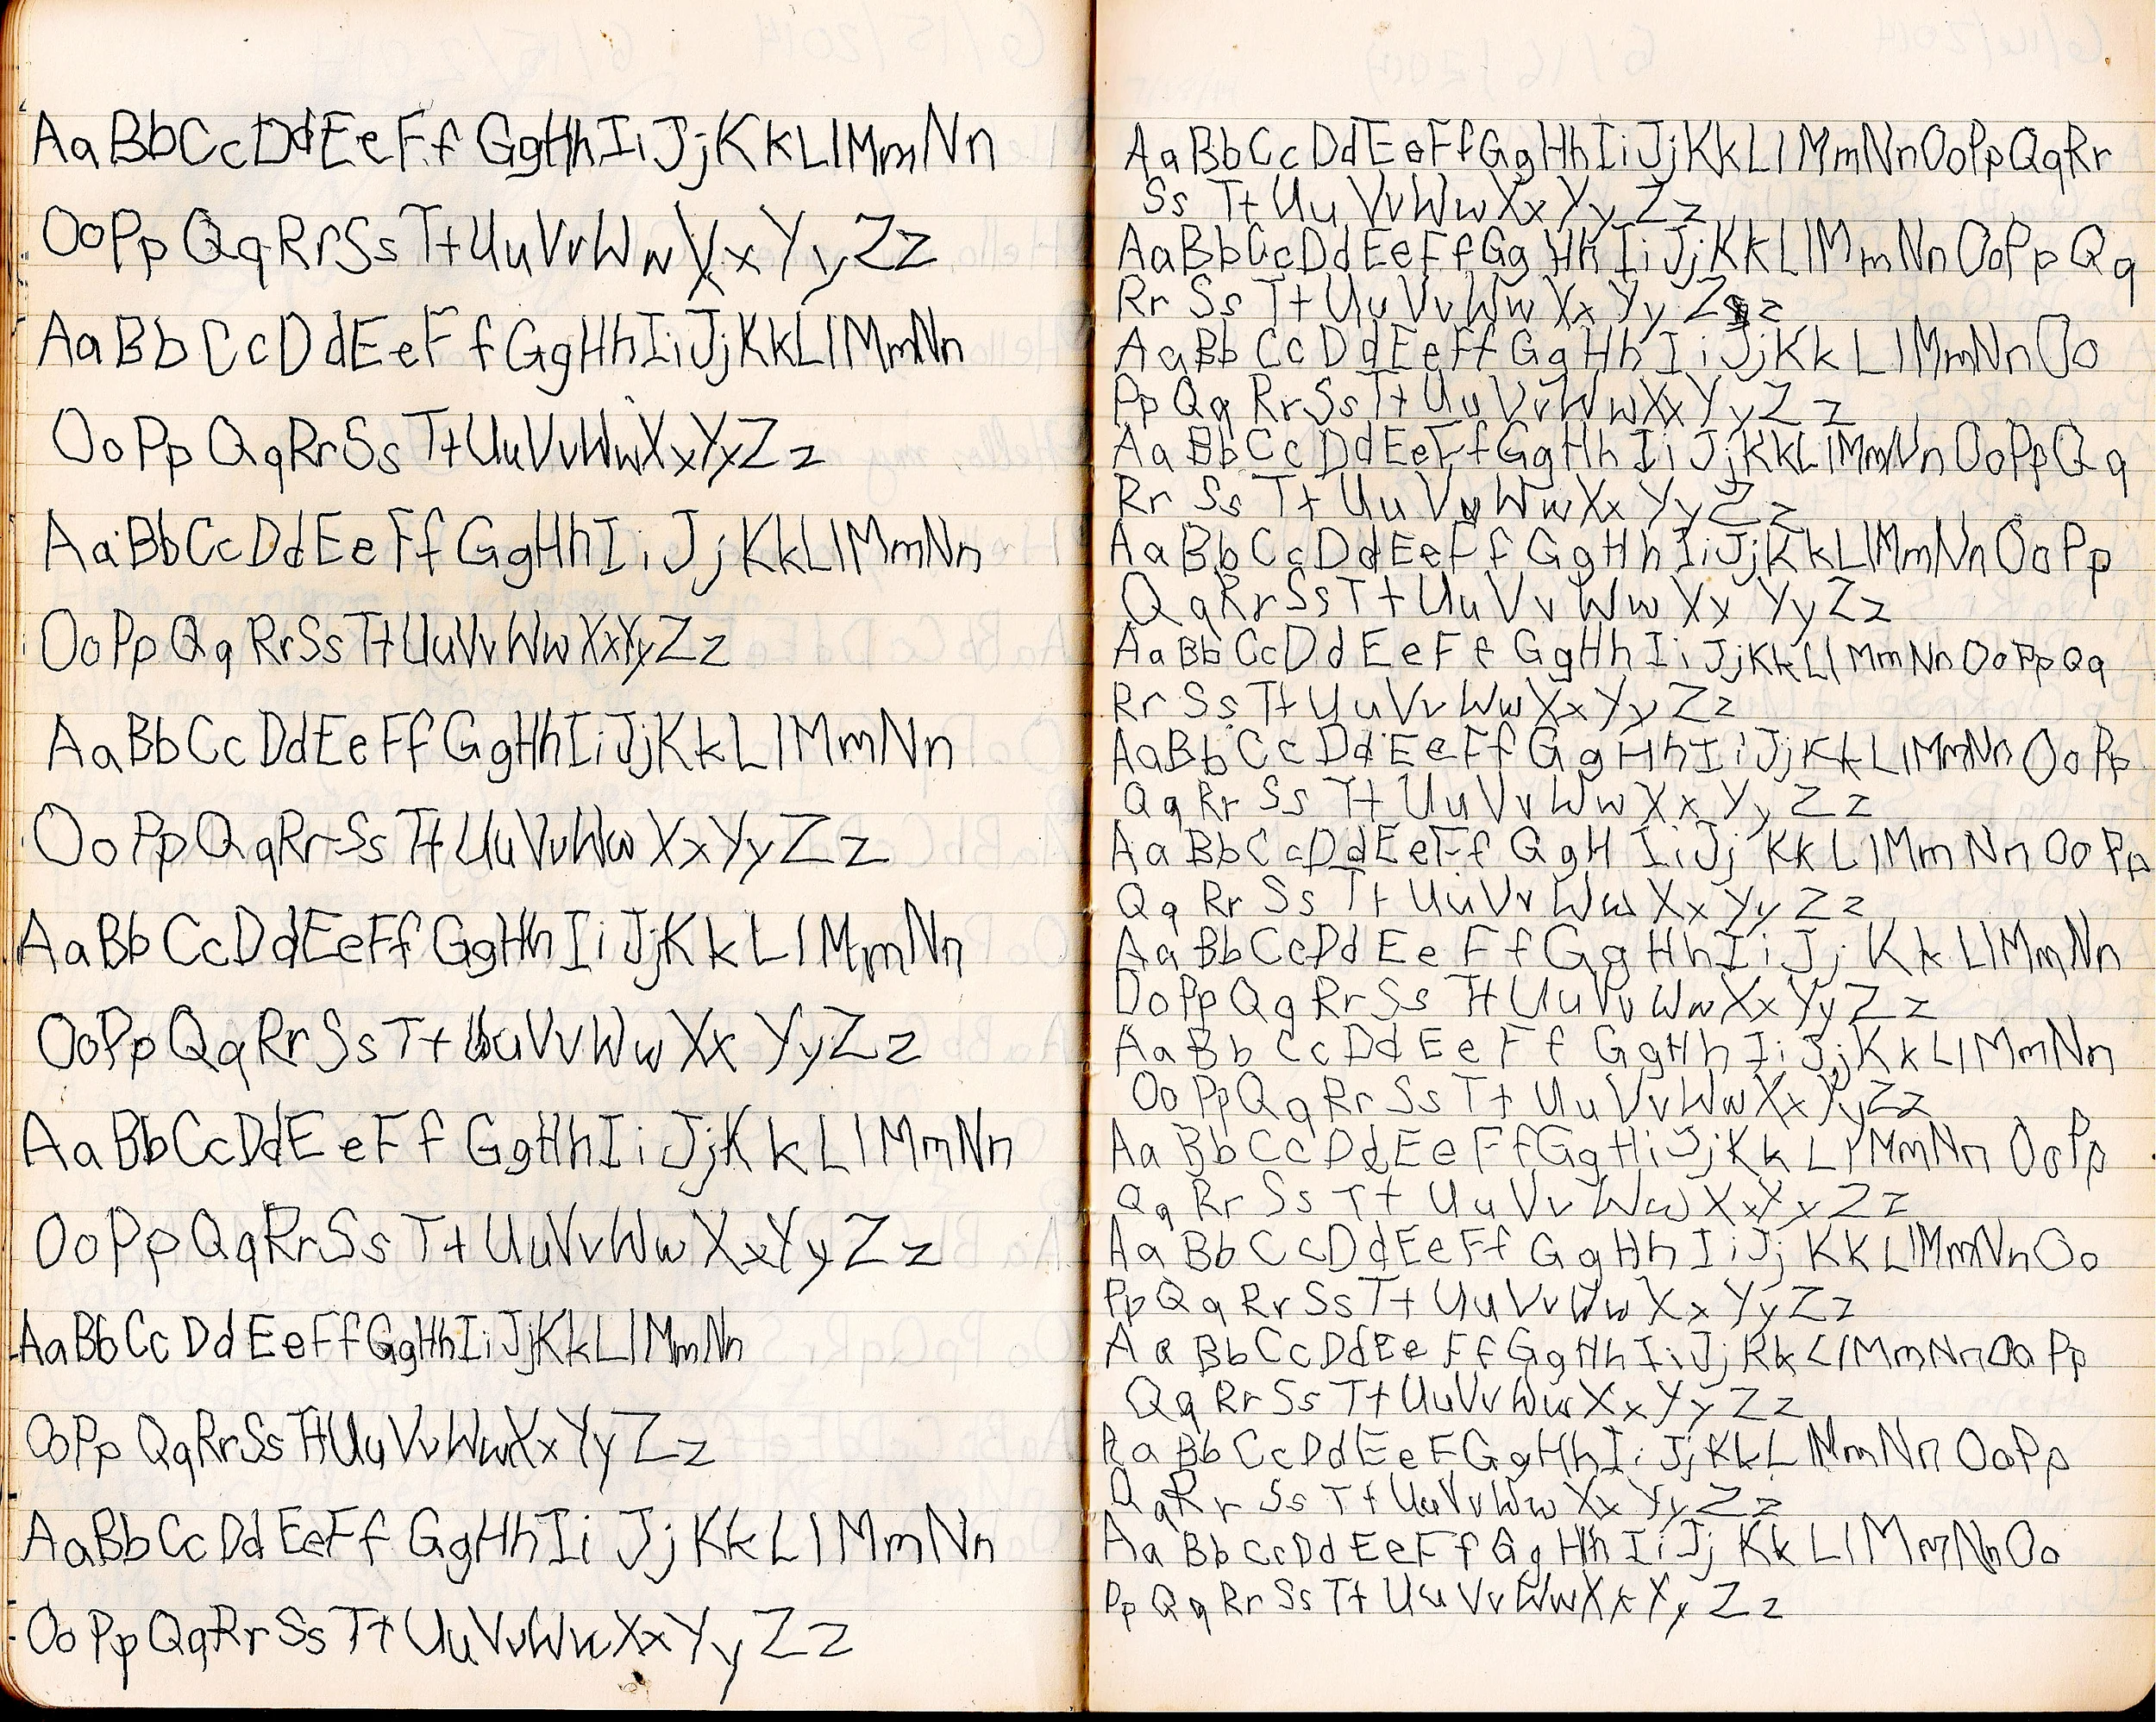 Aa Bb Cc Dd Ee Ff Gg Hh Ii Jj Kk Ll Mm Nn
Oo Pp Qq Rr Ss Tt Uu Vv Ww Xx Yy Zz
Aa Bb Cc Dd Ee Ff Gg Hh Ii Jj Kk Ll Mm Nn
Oo Pp Qq Rr Ss Tt Uu Vv Ww Xx Yy Zz
Aa Bb Cc Dd Ee Ff Gg Hh Ii Jj Kk Ll Mm Nn
Oo Pp Qq Rr Ss Tt Uu Vv Ww Xx Yy Zz
Aa Bb Cc Dd Ee Ff Gg Hh Ii Jj Kk Ll Mm Nn
Oo Pp Qq Rr Ss Tt Uu Vv Ww Xx Yy Zz
Aa Bb Cc Dd Ee Ff Gg Hh Ii Jj Kk Ll Mm Nn
Oo Pp Qq Rr Ss Tt Uu Vv Ww Xx Yy Zz
Aa Bb Cc Dd Ee Ff Gg Hh Ii Jj Kk Ll Mm Nn
Oo Pp Qq Rr Ss Tt Uu Vv Ww Xx Yy Zz
Aa Bb Cc Dd Ee Ff Gg Hh Ii Jj Kk Ll Mm Nn
Oo Pp Qq Rr Ss Tt Uu Vv Ww Xx Yy Zz
Aa Bb Cc Dd Ee Ff Gg Hh Ii Jj Kk Ll Mm Nn
Oo Pp Qq Rr Ss Tt Uu Vv Ww Xx Yy Zz
Aa Bb Cc Dd Ee Ff Gg Hh Ii Jj Kk Ll Mm Nn Oo Pp Qq Rr
Ss Tt Uu Vv Ww Xx Yy Zz
Aa Bb Cc Dd Ee Ff Gg Hh Ii Jj Kk Ll Mm Nn Oo Pp Qq
Rr Ss Tt Uu Vv Ww Xx Yy Z z
Aa Bb Cc Dd Ee Ff Gg Hh Ii Jj Kk Ll Mm Nn Oo
Pp Qq Rr Ss Tt Uu Vv Ww Xx Yy Zz
Aa Bb Cc Dd Ee Ff Gg Hh Ii Jj Kk Ll Mm Nn Oo Pp Qq
Rr Ss Tt Uu Vv Ww Xx Yy Zz
Aa Bb Cc Dd Ee Ff Gg Hh Ii Jj Kk Ll Mm Nn Oo Pp
Qq Rr Ss Tt Uu Vv Ww Xx Yy Zz
Aa Bb Cc Dd Ee Ff Gg Hh Ii Jj Kk Ll Mm Nn Oo Pp Qq
Rr Ss Tt Uu Vv Ww Xx Yy Zz
Aa Bb Cc Dd Ee Ff Gg Hh Ii Jj Kk Ll Mm Nn Oo Pp
Qq Rr Ss Tt Uu Vv Ww Xx Yy Zz
Aa Bb Cc Dd Ee Ff Gg H Ii Jj Kk Ll Mm Nn Oo Pp
Qq Rr Ss Tt Uu Vv Ww Xx Yy Zz
Aa Bb Cc Dd Ee Ff Gg Hh Ii Jj Kk Ll Mm Nn
Oo Pp Qq Rr Ss Tt Uu Vv Ww Xx Yy Zz
Aa Bb Cc Dd Ee Ff Gg Hh Ii Jj Kk Ll Mm Nn
Oo Pp Qq Rr Ss Tt Uu Vv Ww Xx Yy Zz
Aa Bb Cc Dd Ee Ff Gg Hi Jj Kk Ll Mm Nn Oo Pp
Qq Rr Ss Tt Uu Vv Ww Xx Yy Zz
Aa Bb Cc Dd Ee Ff Gg Hh Ii Jj Kk Ll Mm Nn Oo
Pp Qq Rr Ss Tt Uu Vv Ww Xx Yy Zz
Aa Bb Cc Dd Ee Ff Gg Hh Ii Jj Kk Ll Mm Nn Oo Pp
Qq Rr Ss Tt Uu Vv Ww Xx Yy Zz
Aa Bb Cc Dd Ee F Gg Hh Ii Jj Kk L Mm Nn Oo Pp
Qq Rr Ss Tt Uu Vv Ww Xx Yy Zz
Aa Bb Cc Dd Ee Ff Gg Hh Ii Jj Kk Ll Mm Nn Oo
Pp Qq Rr Ss Tt Uu Vv Ww Xx Yy Zz